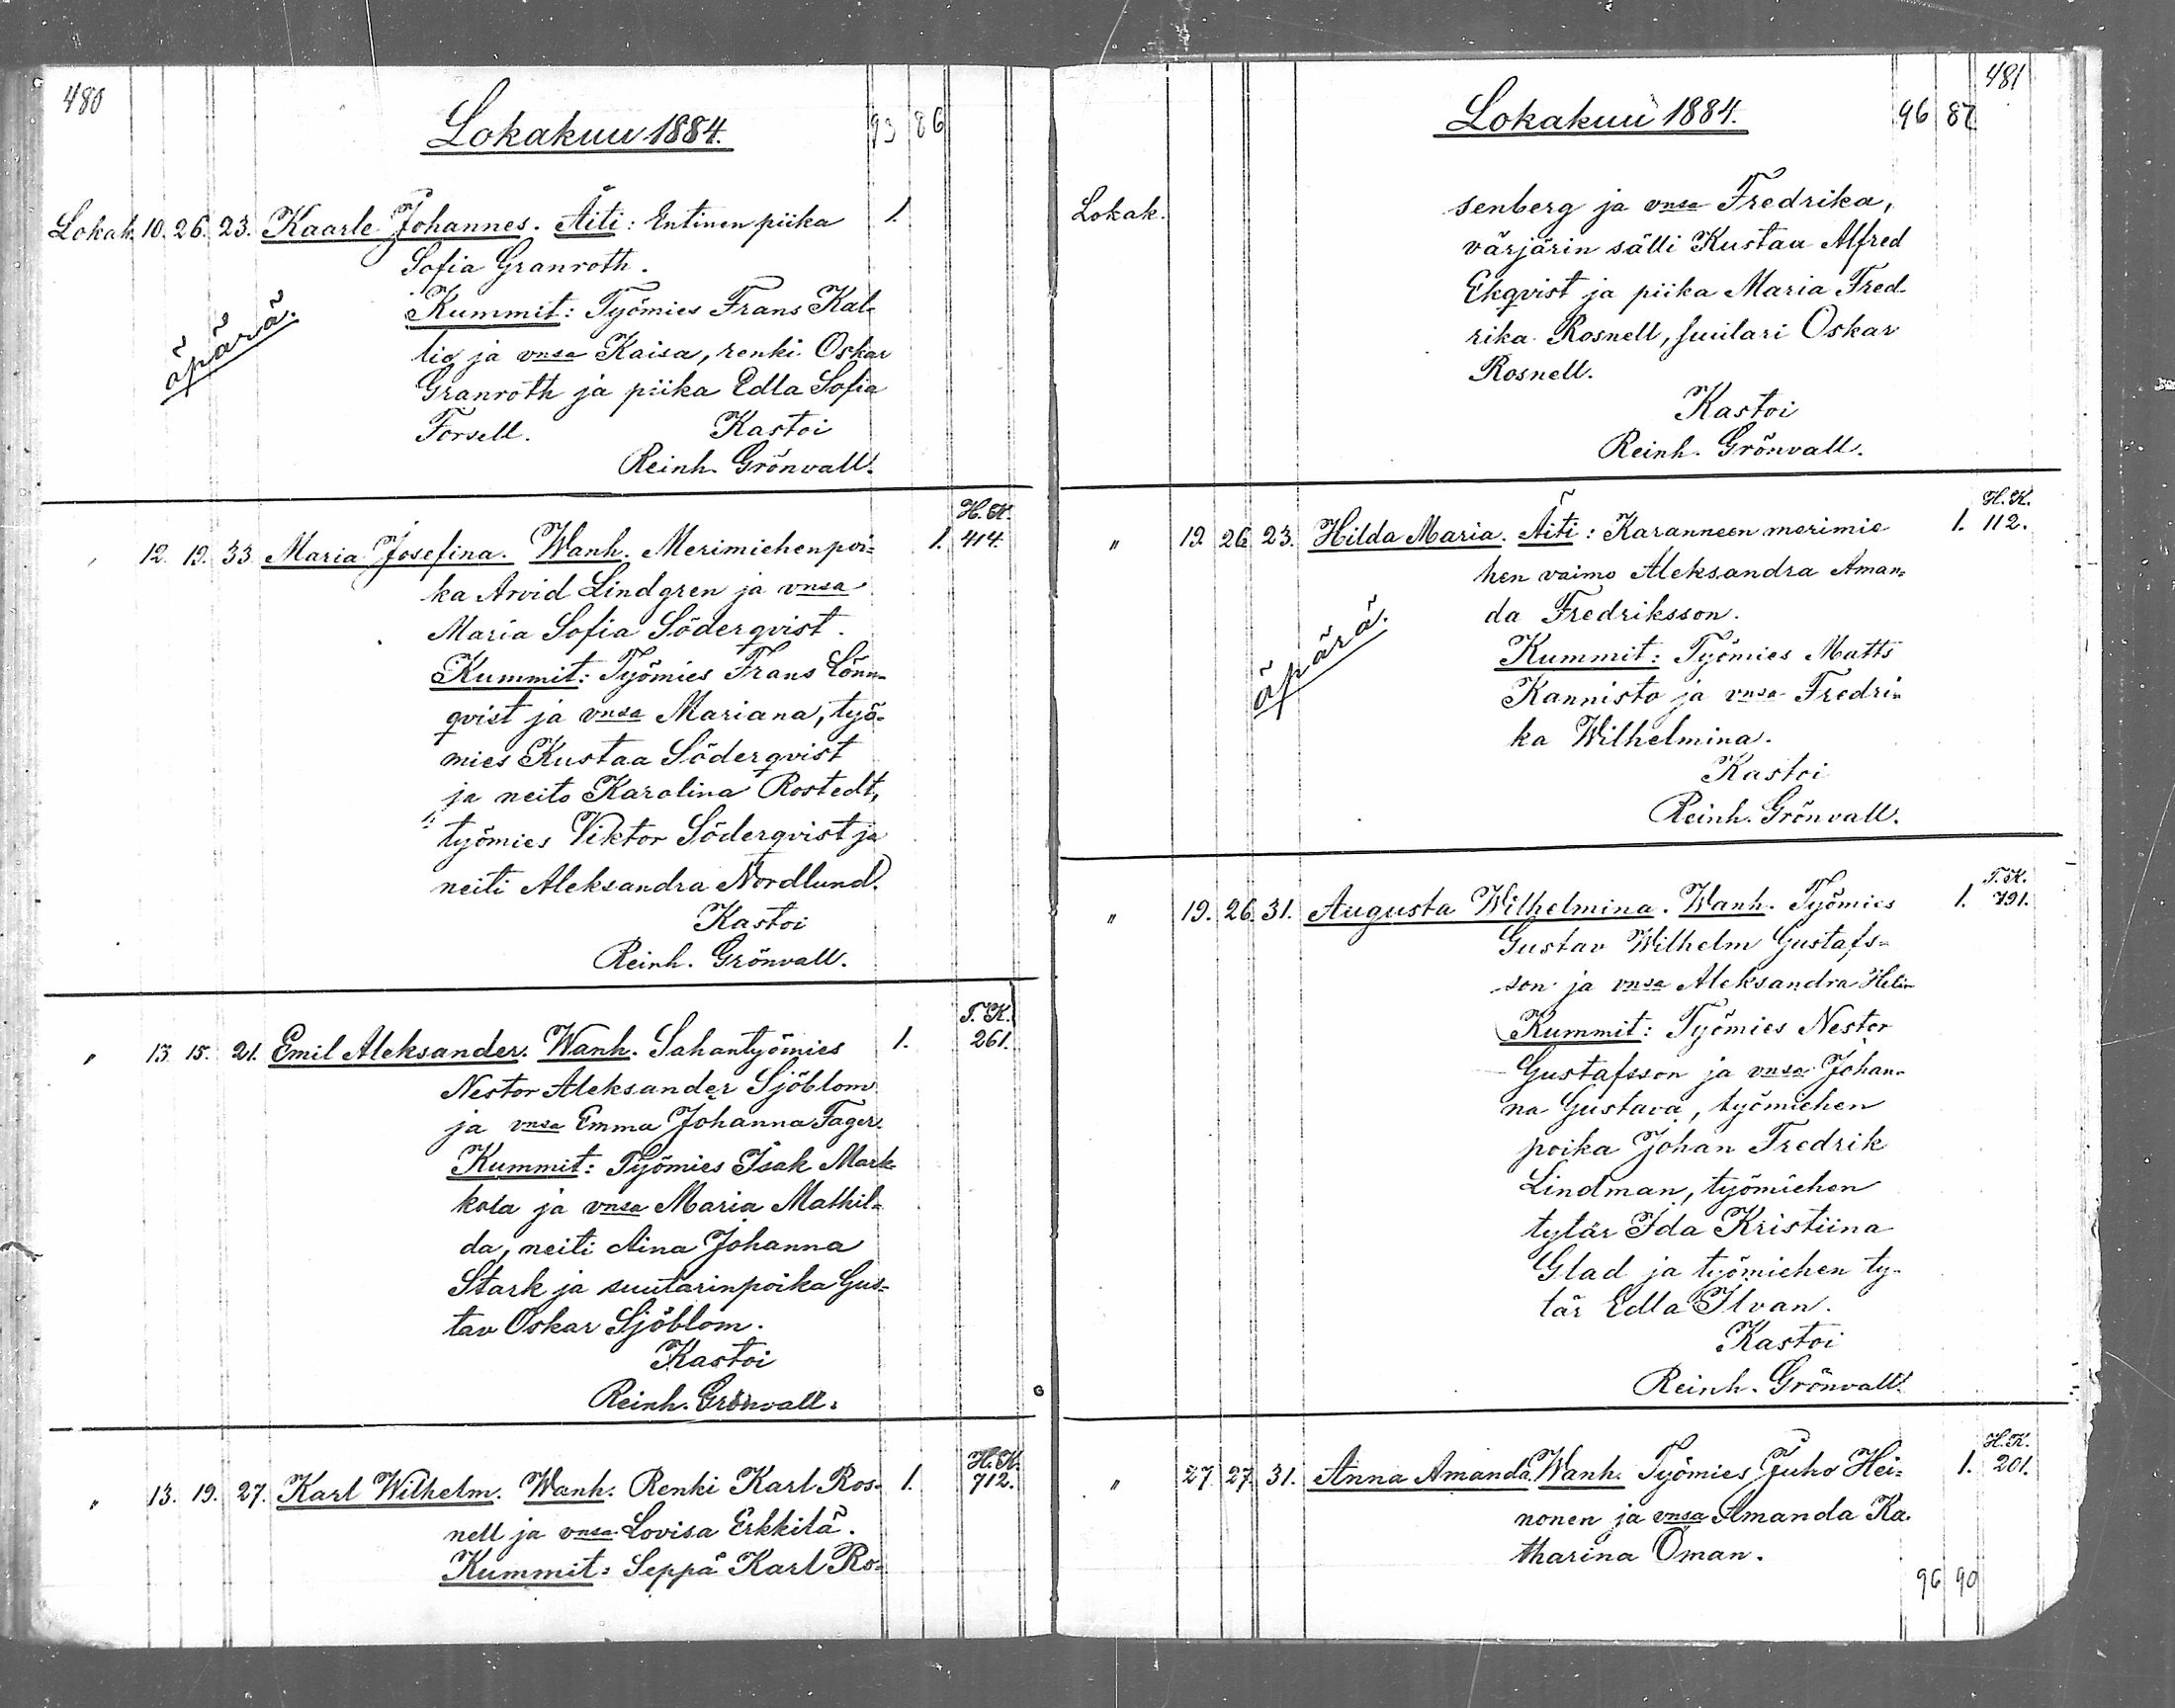 480
Lokakuu 1884. 93 86
Lokak. 10. 26. 23. Kaarle Johannes. Äiti: Entinen piika 1.
Sofia Granroth.
äpärä.
Kummit: Työmies Frans Kal-
lio ja vmsa Kaisa, renki Oskar
Granroth ja piika Edla Sofia
Forsell. Kastoi
Reinh. Grönvall.
H. K.
" 12. 19. 33. Maria Josefina. Wanh. Merimiehenpoi= 1. 414.
ka Arvid Lindgren ja vmsa
Maria Sofia Söderqvist.
Kummit: Työmies Frans Lönn-
qvist ja vmsa Mariana, työ-
mies Kustaa Söderqvist
ja neito Karolina Rostedt,
työmies Viktor Söderqvist ja
neiti Aleksandra Nordlund.
Kastoi
Reinh. Grönvall.
T. K.
" 13. 15. 21. Emil Aleksander. Wanh. Sahantyömies 1. 261.
Nestor Aleksander Sjöblom
ja vmsa Emma Johanna Fager.
Kummit: Työmies Isak Mark-
kola ja vmsa Maria Mathil=
da, neiti Aina Johanna
Stark ja suutarinpoika Gus=
tav Oskar Sjöblom.
Kastoi
Reinh. Grönvall.
H. K.
" 13. 19. 27. Karl Wilhelm. Wanh. Renki Karl Ros- 1. 712.
nell ja vmsa Lovisa Erkkilä.
Kummit: Seppä Karl Ro=
481
Lokakuu 1884. 96 87
Lokak. senberg ja vmsa Fredrika,
värjärin sälli Kustaa Alfred
Ekqvist ja piika Maria Fred-
rika Rosnell, suutari Oskar
Rosnell.
Kastoi
Reinh. Grönvall.
H. K.
" 19 26 23. Hilda Maria. Äiti: Karanneen merimie 1. 112.
hen vaimo Aleksandra Aman=
da Fredriksson.
äpärä.
Kummit: Työmies Matts
Kannisto ja vmsa Fredri-
ka Wilhelmina.
Kastoi
Reinh. Grönvall.
T. K.
" 19. 26. 31. Augusta Wilhelmina. Wanh. Työmies 1. 791.
Gustav Wilhelm Gustafs=
son ja vmsa Aleksandra Helin
Kummit: Työmies Nestor
Gustafsson ja vmsa Johan-
na Gustava, työmiehen
poika Johan Fredrik
Lindman, työmiehen
tytär Ida Kristiina
Glad ja työmiehen ty-
tär Edla Ilvan.
Kastoi
Reinh. Grönvall.
H. K.
" 27 27. 31. Anna Amanda. Wanh. Työmies Juho Hei= 1. 201.
nonen ja vmsa Amanda Ka-
tharina Öman.
96 90